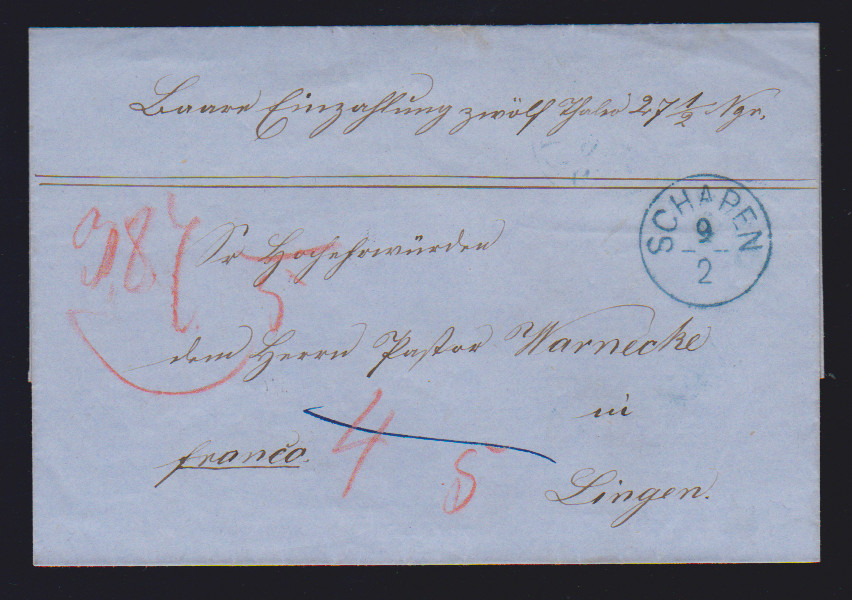 Baare Einzahlung zwölf Thaler 27 1/2 Ngr.
SCHAPEN
9
2
Sr Hochehrwürden
dem Herrn Pastor Warnecke
in
franco.
Lingen.
4
5